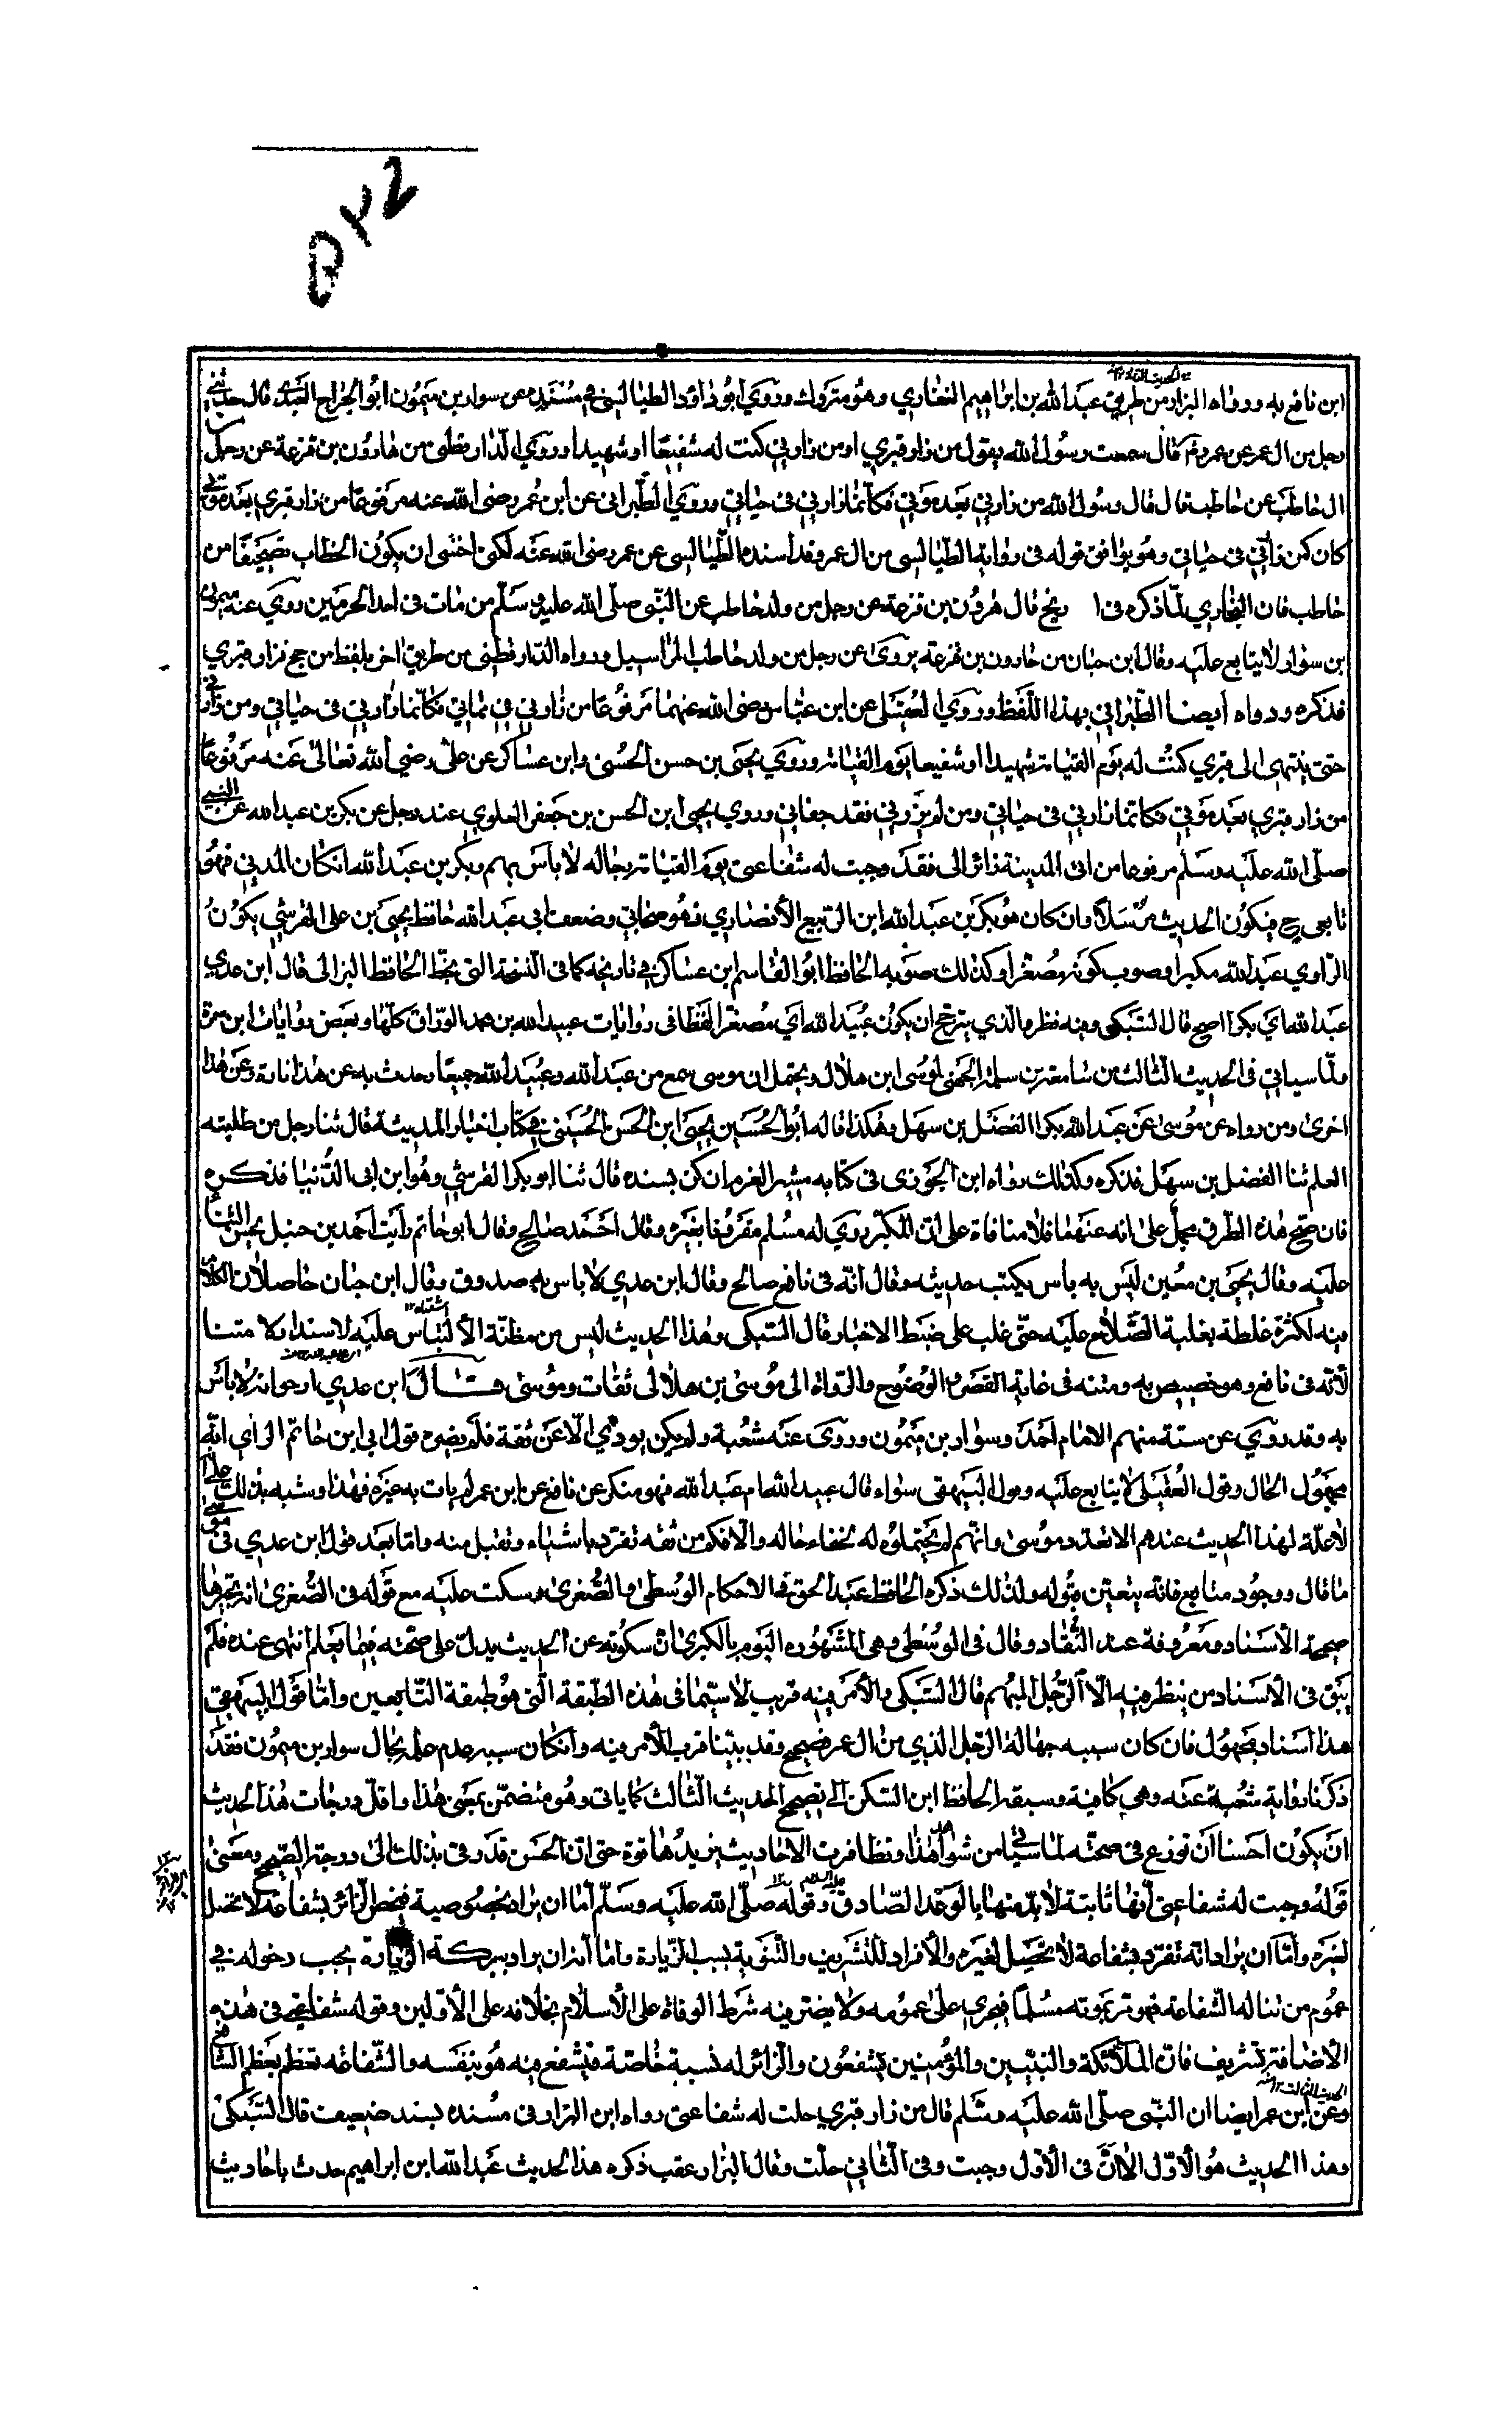 ٥٢٤
ابن نافع به ورواه البزار من طريق عبد الله بن ابراهيم الغفاري وهو متروك وروي ابو داؤد الطيالسي في مسنده عن سوار بن ميمون ابو الجراح العبدي قال حدثني
رجل من ال عمر عن عمر رض قال سمعت رسول الله يقول من زار قبري او من زارني كنت له شفيعا او شهيدا وروي الدارقطني من هارون بن قزعة عن رجل من
ال خاطب عن حاطب قال قال رسول الله من زارني بعد موتي فكانما زارني في حياتي وروي الطبراني عن ابن عمر رضي الله عنه مرفوعا من زار قبري بعد موتي
كان كمن زارني في حياتي وهو يوافق قوله في رواية الطيالسي من ال عمر وقد اسنده الطيالسي عن عمر رضي الله عنه لكني اخشى ان يكون الخطاب تصحيفا من
خاطب فان البخاري لما ذكره في ا ريخ قال هرون بن قزعة عن رجل من ولد خاطب عن النبي صلى الله عليه وسلم من مات في احد الحرمين روي عنه ميمون
بن سوار لا يتابع عليه وقال ابن حبان من هارون بن قزعة يروي عن رجل من ولد خاطب المراسيل ورواه الدارقطني من طريق اخر بلفظ من حج فزار قبري
فذكره ورواه أيضا الطبراني بهذا اللفظ وروي العقيلي عن ابن عباس رضي الله عنهما مرفوعا من زارني في مماتي فكانما زارني في حياتي ومن زارني
حتى ينتهى الى قبري كنت له يوم القيامة شهيدا او شفيعا يوم القيامة وروي يحيى بن حسن الحسني وابن عساكر عن علي رضي الله تعالى عنه مرفوعا
من زار قبري بعد موتي فكانما زارني في حياتي ومن لم يزرني فقد جفاني وروي يحيى ابن الحسن بن جعفر العلوي عنه رجل عن بكر بن عبد الله عن النبي
صلى الله عليه وسلم مرفوعا من اتى المدينة زائرا الى فقد وجبت له شفاعتي يوم القيامة رجاله لا باس بهم وبكر بن عبد الله ان كان المدني فهو
تابعي ح فيكون الحديث مرسلا وان كان هو بكر بن عبد الله ابن الربيع الأنصاري فهو صحابي وضعف ابي عبد الله حافظ يحيى بن علي القرشي يكون
الراوي عبد الله مكبرا وصوب كونه مصغرا وكذلك صوبه الحافظ ابو القاسم ابن عساكر في تاريخه كما في النسخة التي بخط الحافظ البزالي قال ابن عدي
عبد الله اي بكرا اصح قال السبكي وفيه نظر والذي يترجح ان يكون عبيد الله اي مصغرا لفظا في روايات عبيد الله بن محمد الوراق كلها وبعض روايات ابن سمرة
ولما سياتي في الحديث الثالث من متابعة بن سلمة الجهني لموسى ابن هلال ويحتمل ان موسى سمع من عبد الله وعبيد الله جميعا وحدث به عن هذا تارة وعن هذا
اخرى ومن رواه عن موسى عن عبد الله بكرا الفضل بن سهل وهكذا قاله ابو الحسين يحيى ابن الحسن الحسيني في كتاب اخبار المدينة قال ثنا رجل من طلبته
العلم ثنا الفضل بن سهل فذكره وكذلك رواه ابن الجوزى في كتابه مثير الغرم ان كن بسنده قال ثنا ابو بكر القرشي وهو ابن ابى الدنيا فذكره
فان صح هذه الطرق محمل على انه عنهما فلا منافاة على ان المكبر روي له مسلم مقرونا بغيره وقال احمد صالح وقال ابو حاتم رايت احمد بن حنبل يحسن الثناء
عليه وقال يحيى بن معين ليس به باس يكتب حديثه وقال انه في نافع صالح وقال ابن عدي لا باس به صدوق وقال ابن حبان حاصلان الكلام
فيه لكثرة غلطه بغلبة الصلاح عليه حتى غلب على ضبط الاخبار قال السبكي وهذا الحديث ليس من مظنة الألتباس عليه لا سندا ولا متنا
لأنه في نافع وهو خصيص به ومتنه في غاية القصر والوضوح والرواة الى موسى بن هلال ثقات وموسى قال ابن عدي ارجو انه لا باس
به وقد روي عن ستة منهم الامام احمد وسوار بن ميمون وروى عنه شعبة ولم يكن يودي الا عن ثقة فلم يضره قول ابي ابن حاتم الرازي انه
مجهول الحال وقول العقيلي لا يتابع عليه وقول البيهقى سواء قال عبيد الله ام عبد الله فهو منكر عن نافع عن ابن عمر لم يات به غيره فهذا وشبهه يدلك على ان
لا علة لهذا الحديث عندهم الا تفرد موسى وانهم لم يحتملوه له لخفاء حاله والا فكم من ثقه تفرد باشياء وتقبل منه واما بعد قول ابن عدي في موسى
ما قال ووجود متابع فانه يتعين قبوله ولذلك ذكره الحافظ عبد الحق في الاحكام الوسطى والصغرى وسكت عليه مع قوله في الصغرى انه تخيرها
صحيحة الأسناد ومعروفة عند النقاد وقال في الوسطى وهي المشهوره اليوم بالكبرى ان سكوته عن الحديث يدل على صحته فيما يعلم انتهى عنده فلم
يبق في الأسناد من ينظر فيه الا الرجل المبهم قال السبكي والأمر فيه قريب لا سيما في هذه الطبقة التي هو طبقة التابعين واما قول البيهقي
هذا اسناد مجهول فان كان سببه جهالة الرجل الذي من ال عمر فصحيح وقد بينا قرب الأمر فيه وان كان سببه عدم علمه بحال سوار بن ميمون فقد
ذكرنا رواية شعبة عنه وهي كافية وسبقه الحافظ ابن السكن الى تصحيح الحديث الثالث كما ياتى وهو متضمن بمعنى هذا واقل درجات هذا الحديث
ان يكون احسنا ان توزع في صحته لما سياتي من شواهد هذا وتظافرت الاحاديث يزيدها قوة حتى ان الحسن قد رقى بذلك الى درجة الصحيح ومعنى
قوله وجبت له شفاعتي انها ثابتة لا بد منها بالوعد الصادق وقوله صلى الله عليه وسلم اما ان يراد بخصوصية فيخص الزائر بشفاعة لا تحصل
لغيره واما ان يراد انه تفرد بشفاعة لا تحصل لغيره والأفراد للتشريف والتنويه بسبب الزيارة واما انه ان يراد ببركة الزيارة يجب دخوله في
عموم من تناله الشفاعة فهو تر بموته مسلما فيجرى على عمومه ولا يضتر فيه شرط الوفاة على الأسلام بخلافه على الأولين وقوله شفاعتي في هذه
الأضافة تشريف فان الملائكة والنبيين والمؤمنين يشفعون والزائر له نسبة خاصة فيشفع فيه هو بنفسه والشفاعة تعظم بعظم الشافع
الحديث الثالث
وعن ابن عمر ايضا ان النبى صلى الله عليه وسلم قال من زار قبري حلت له شفاعتي رواه ابن البزار في مسنده بسند ضعيف قال السبكي
وهذا الحديث هو الأول الا ان في الأول وجبت وفي الثاني حلت وقال البزار عقب ذكره هذا الحديث عبد الله ابن ابراهيم حدث باحاديث